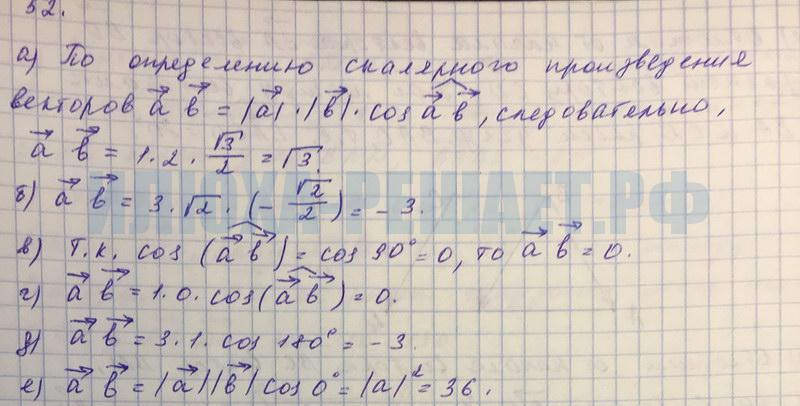 32.
а) По определению скалярного произведения
векторов a⃗ b⃗ = |a⃗| · |b⃗| · cos a⃗ b⃗, следовательно,
a⃗ b⃗ = 1 · 2 · √3/2 = √3.
ИЛЮХА-РЕШАЕТ.РФ
б) a⃗ b⃗ = 3 · √2 · (- √2/2) = - 3.
в) Т.к. cos (a⃗ b⃗) = cos 90° = 0, то a⃗ b⃗ = 0.
г) a⃗ b⃗ = 1 · 0 · cos (a⃗ b⃗) = 0.
д) a⃗ b⃗ = 3 · 1 · cos 180° = - 3.
е) a⃗ b⃗ = |a⃗| |b⃗| cos 0° = |a|² = 36.